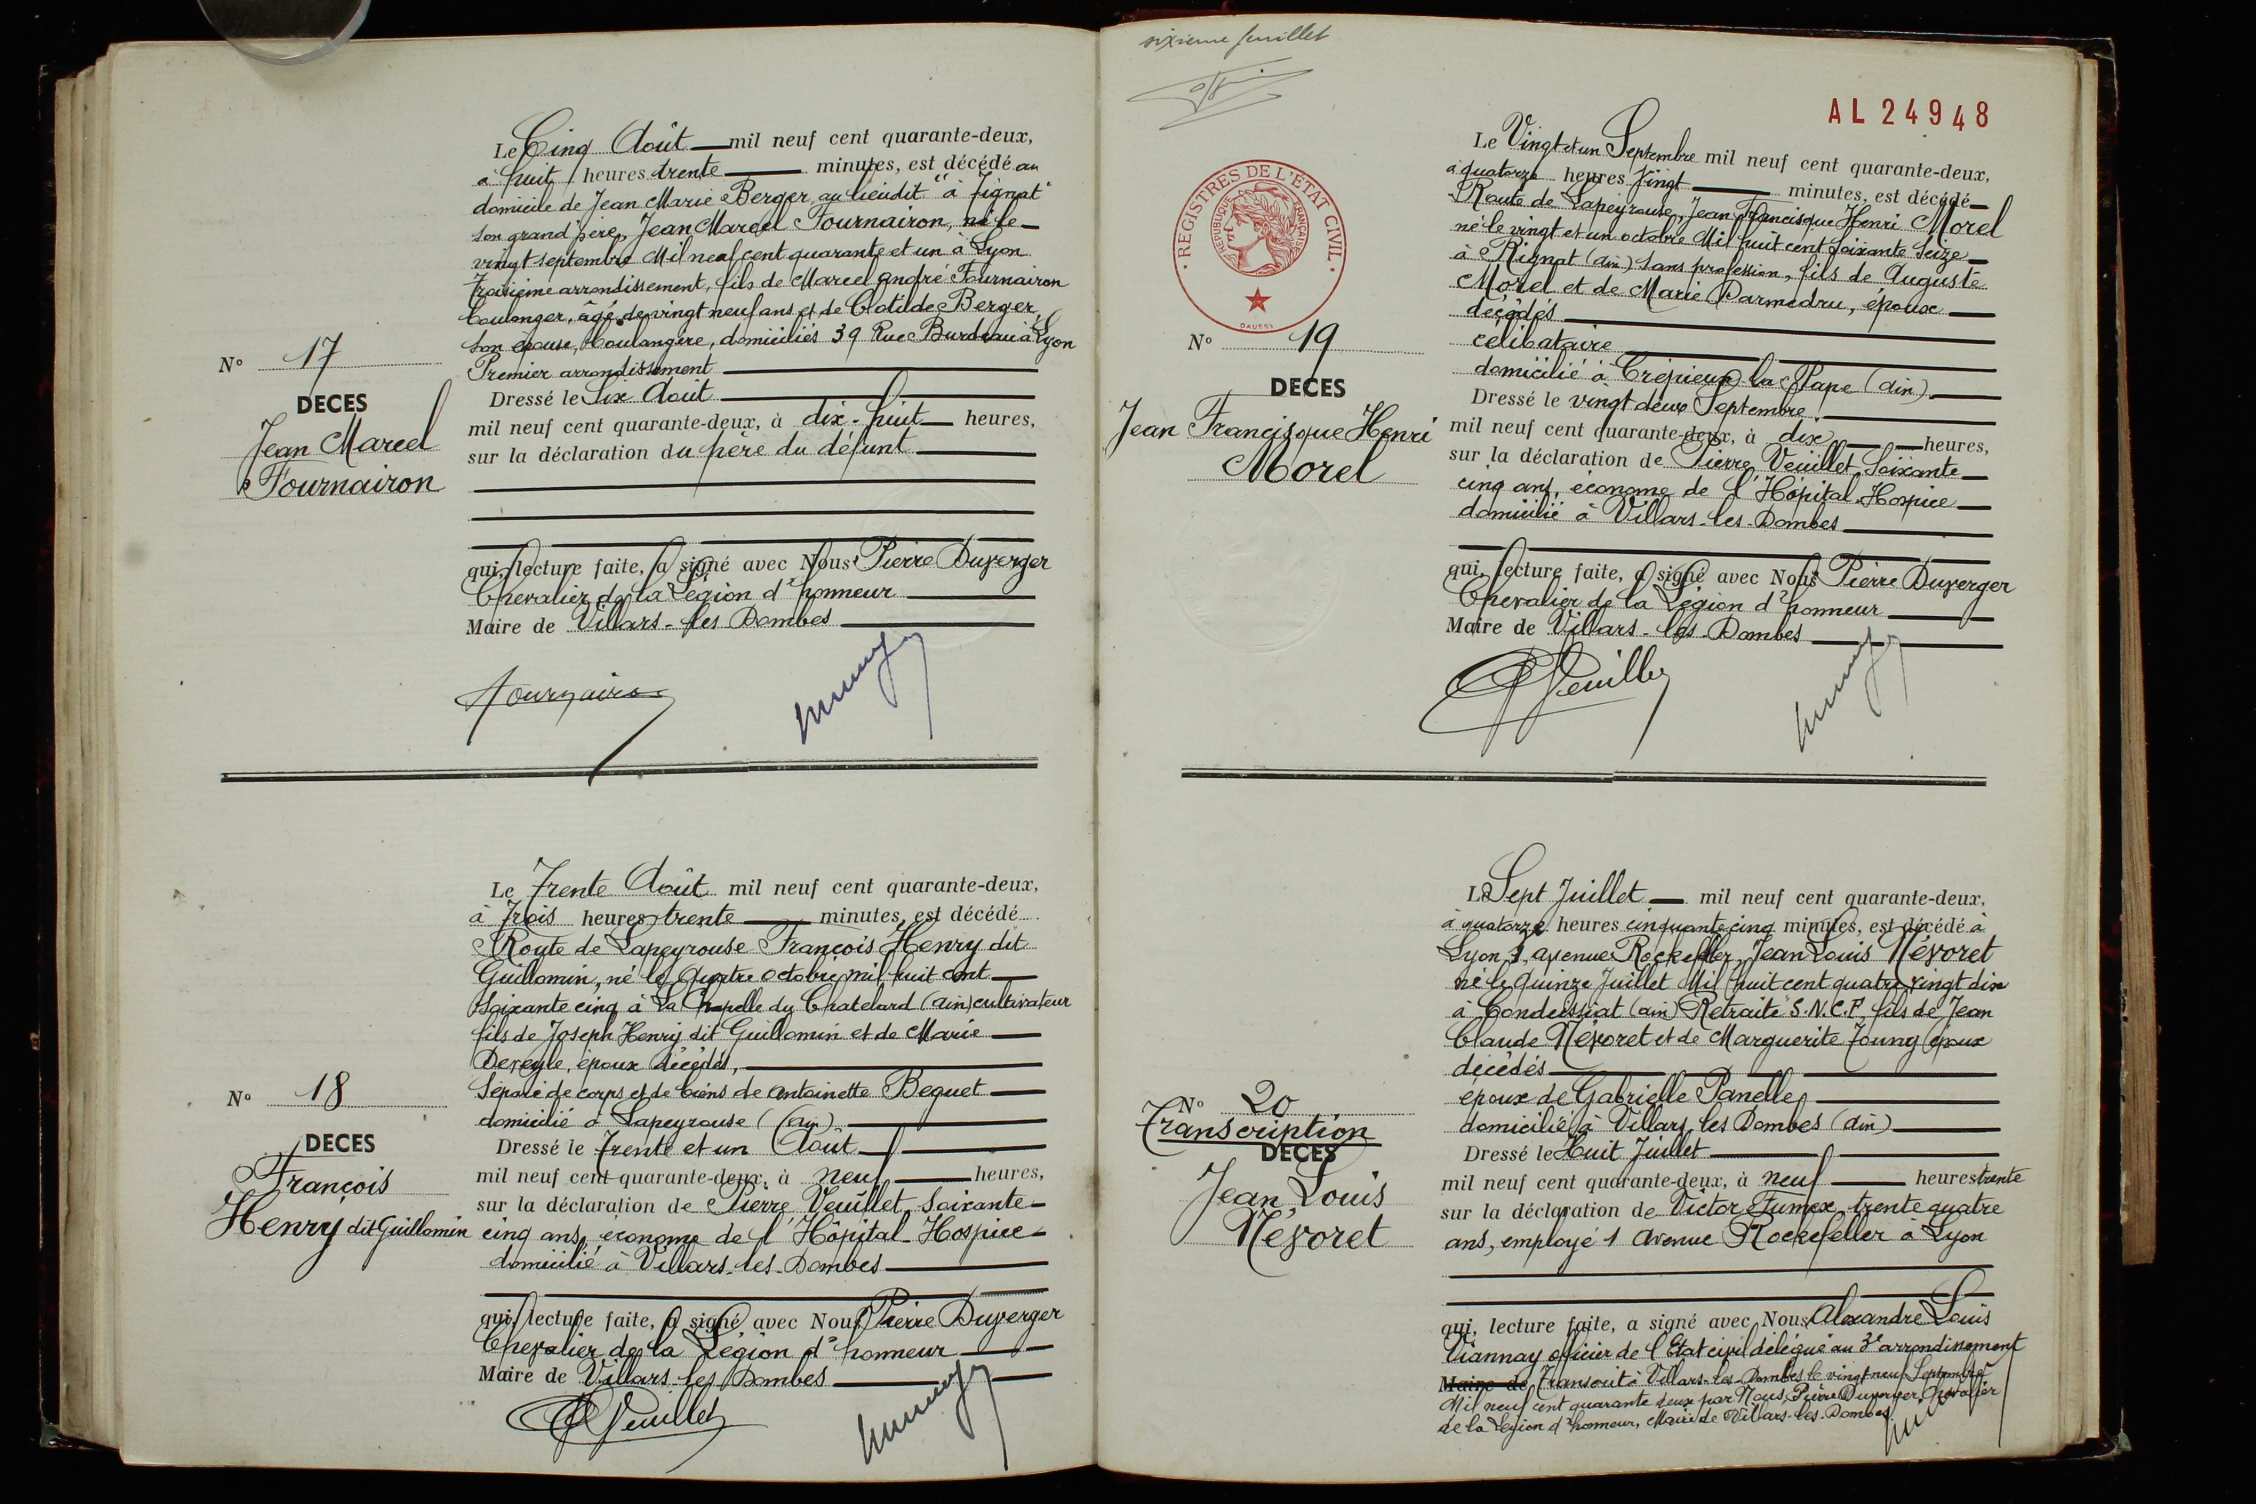 Le Cinq Août mil neuf cent quarante-deux,
à huit heures trente minutes, est décédé au
domicile de Jean Marie Berger au lieudit "à Tignat"
son grand père, Jean Marcel Fournairon, né le
vingt septembre Mil neuf cent quarante et un à Lyon
Troisième arrondissement, fils de Marcel André Fournairon
boulanger, âgé de vingt neuf ans et de Clotilde Berger,
son épouse, boulangère, domiciliés 39 Rue Burdeau à Lyon
Premier arrondissement
Dressé le Six Août
mil neuf cent quarante-deux, à dix-huit heures,
sur la déclaration du père du défunt
qui, lecture faite, a signé avec Nous Pierre Duverger
Chevalier de la Légion d'honneur
Maire de Villars-les Dombes
N° 17
DECES
Jean Marcel
Fournairon
Le Trente Août mil neuf cent quarante-deux,
à Trois heures trente minutes, est décédé
Route de Lapeyrouse François Henry dit
Guillomin, né le Quatre octobre mil huit cent
soixante cinq à La Chapelle du Chatelard (Ain) cultivateur
fils de Joseph Henry dit Guillomin et de Marie
Deveyle, époux décédés,
séparé de corps et de biens de Antoinette Beguet
domicilié à Lapeyrouse (Ain)
Dressé le Trente et un Août
mil neuf cent quarante-deux, à neuf heures,
sur la déclaration de Pierre Veuillet soixante
cinq ans, économe de l'Hôpital-Hospice
domicilié à Villars-les-Dombes
qui, lecture faite, a signé avec Nous Pierre Duverger
Chevalier de la Légion d'honneur
Maire de Villars les Dombes
Veuillet
N° 18
DECES
François
Henry dit Guillomin
sixième feuillet
AL 24948
REGISTRES DE L'ÉTAT CIVIL
REPUBLIQUE FRANÇAISE
Le Vingt et un Septembre mil neuf cent quarante-deux,
à quatorze heures vingt minutes, est décédé
Route de Lapeyrouse, Jean Francisque Henri Morel
né le vingt et un octobre Mil huit cent soixante seize
à Rignat (Ain) sans profession, fils de Auguste
Morel et de Marie Parmedru, époux
décédés
célibataire
domicilié à Crépieux-la-Pape (Ain)
Dressé le vingt deux Septembre
mil neuf cent quarante-deux, à dix heures,
sur la déclaration de Pierre Veuillet soixante
cinq ans, économe de l'Hôpital-Hospice
domicilié à Villars-les-Dombes
qui, lecture faite, a signé avec Nous Pierre Duverger
Chevalier de la Légion d'honneur
Maire de Villars-les-Dombes
Veuillet
N° 19
DECES
Jean Francisque Henri
Morel
Le Sept Juillet mil neuf cent quarante-deux,
à quatorze heures cinquante cinq minutes, est décédé à
Lyon, 1, avenue Rockefeller, Jean Louis Névoret
né le quinze Juillet Mil huit cent quatre vingt dix
à Condeissiat (Ain) Retraité S.N.C.F. fils de Jean
Claude Névoret et de Marguerite Joung époux
décédés
époux de Gabrielle Panelle
domicilié à Villars les Dombes (Ain)
Dressé le Huit Juillet
mil neuf cent quarante-deux, à neuf heures trente
sur la déclaration de Victor Fumex, trente quatre
ans, employé 1 Avenue Rockefeller à Lyon
qui, lecture faite, a signé avec Nous Alexandre Louis
Viannay officier de l'Etat civil délégué au 3e arrondissement
Maire de Transcrit à Villars-les-Dombes le vingt neuf Septembre
Mil neuf cent quarante deux par Nous, Pierre Duverger, Chevalier
de la Légion d'honneur, Maire de Villars-les-Dombes.
N° 20
Transcription
DECES
Jean Louis
Névoret